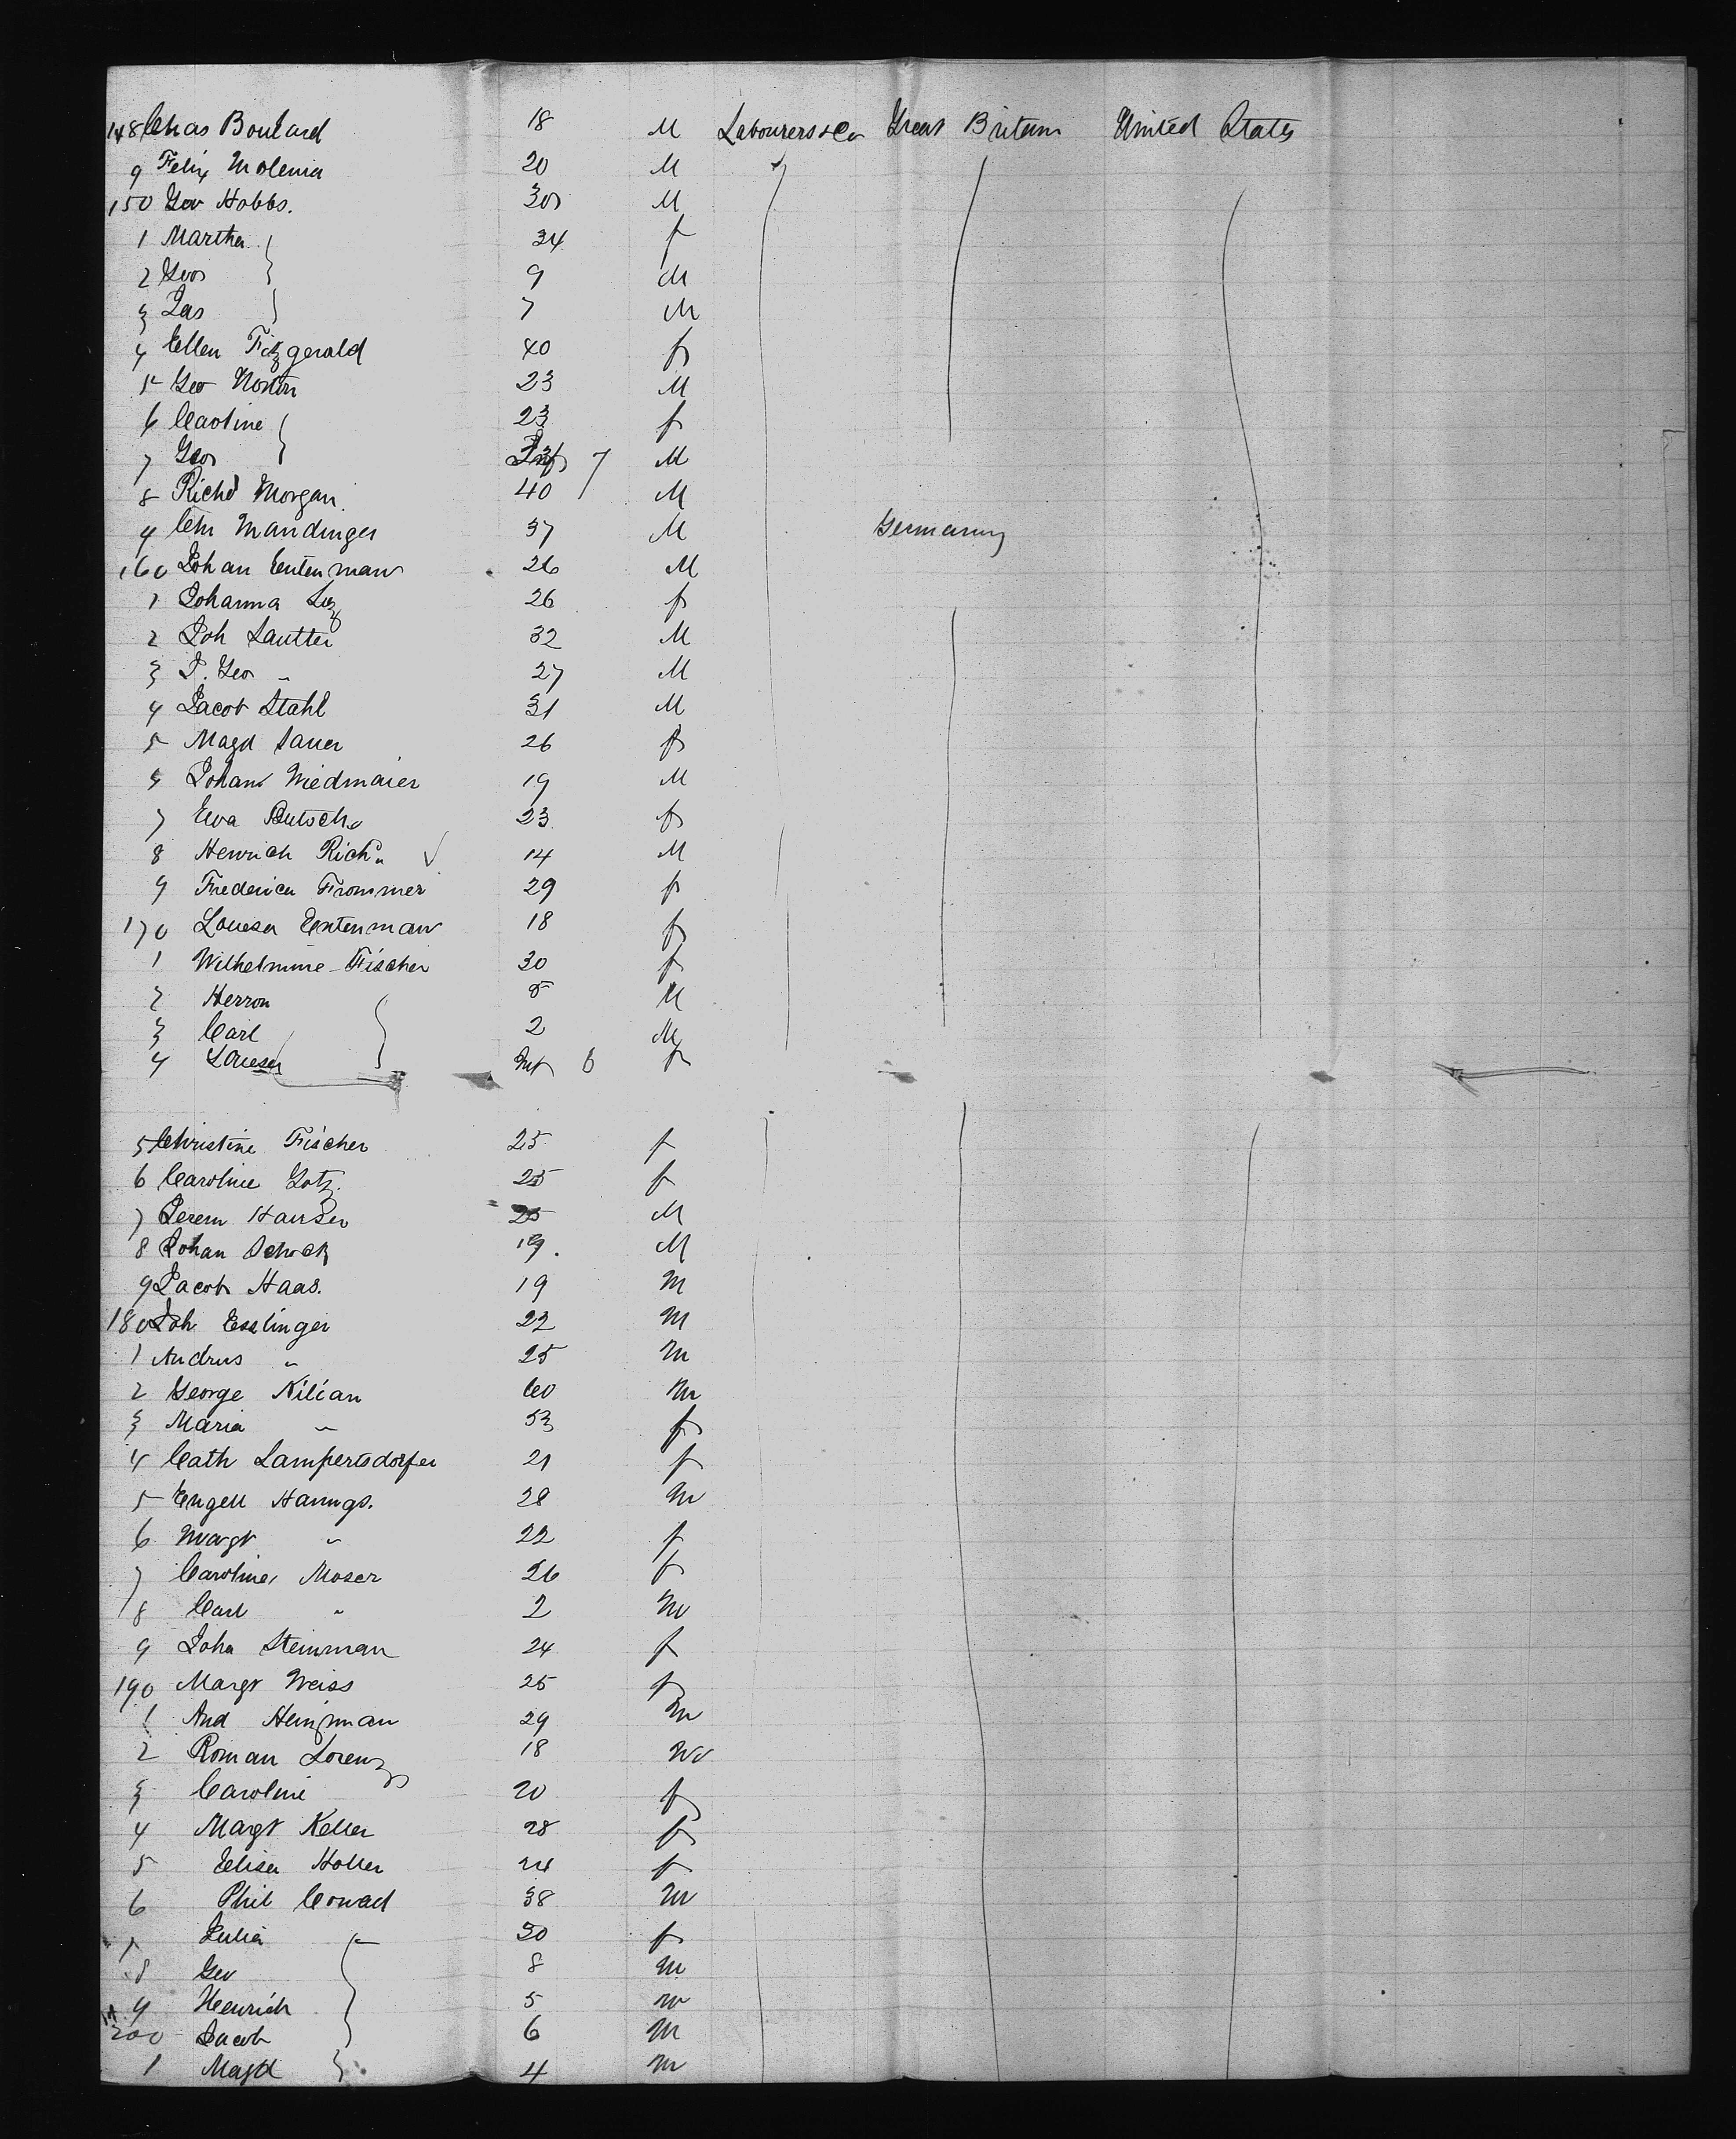 148 Chas Boulard 18 M Labourers &c Great Britain United States
9 Felix Molenia 20 M
150 Geo Hobbs. 30 M
1 Martha 34 f
2 Geo 9 M
3 Jas 7 M
4 Ellen Fitzgerald 40 f
5 Geo Norton 23 M
6 Caroline 23 f
7 Geo Inf 7 M
8 Richd Morgan 40 M
9 Chr Mandinger 37 M Germany
160 Johan Entenman 26 M
1 Johanna Luz 26 f
2 Joh Sautter 32 M
3 J. Geo " 27 M
4 Jacob Stahl 31 M
5 Magd Sauer 26 f
6 Johans Wiedmaier 19 M
7 Eva 23 f
8 Henrich Rich 14 M
9 Frederica Frommer 29 f
170 Louesa Entenman 18 f
1 Wilhelmine Fischer 30 f
2 Herron 5 M
3 Carl 2 M
4 Louesa Inf 6 f
5 Christine Fischer 25 f
6 Caroline Gotz. 25 f
7 Jerem Hauser 25 M
8 Johan Schock 19. M
9 Jacob Haas. 19 M
180 Joh Esslinger 22 M
1 Andrus " 25 M
2 George Kilian 60 M
3 Maria " 53 f
4 Cath Lampertsdorfer 21 f
5 Engell Hanngs. 28 M
6 Margt " 22 f
7 Caroline Moser 26 f
8 Carl " 2 M
9 Joha Steinman 24 f
190 Margt Weiss 25 f
1 And Heinzman 29 M
2 Roman Lorenz 18 M
3 Caroline 20 f
4 Margt Keller 28 f
5 Elisa Holler 24 f
6 Phil Conrad 38 M
7 Julia 30 f
8 Geo 8 M
9 Henrich 5 M
200 Jacob 6 M
1 Magd 4 M